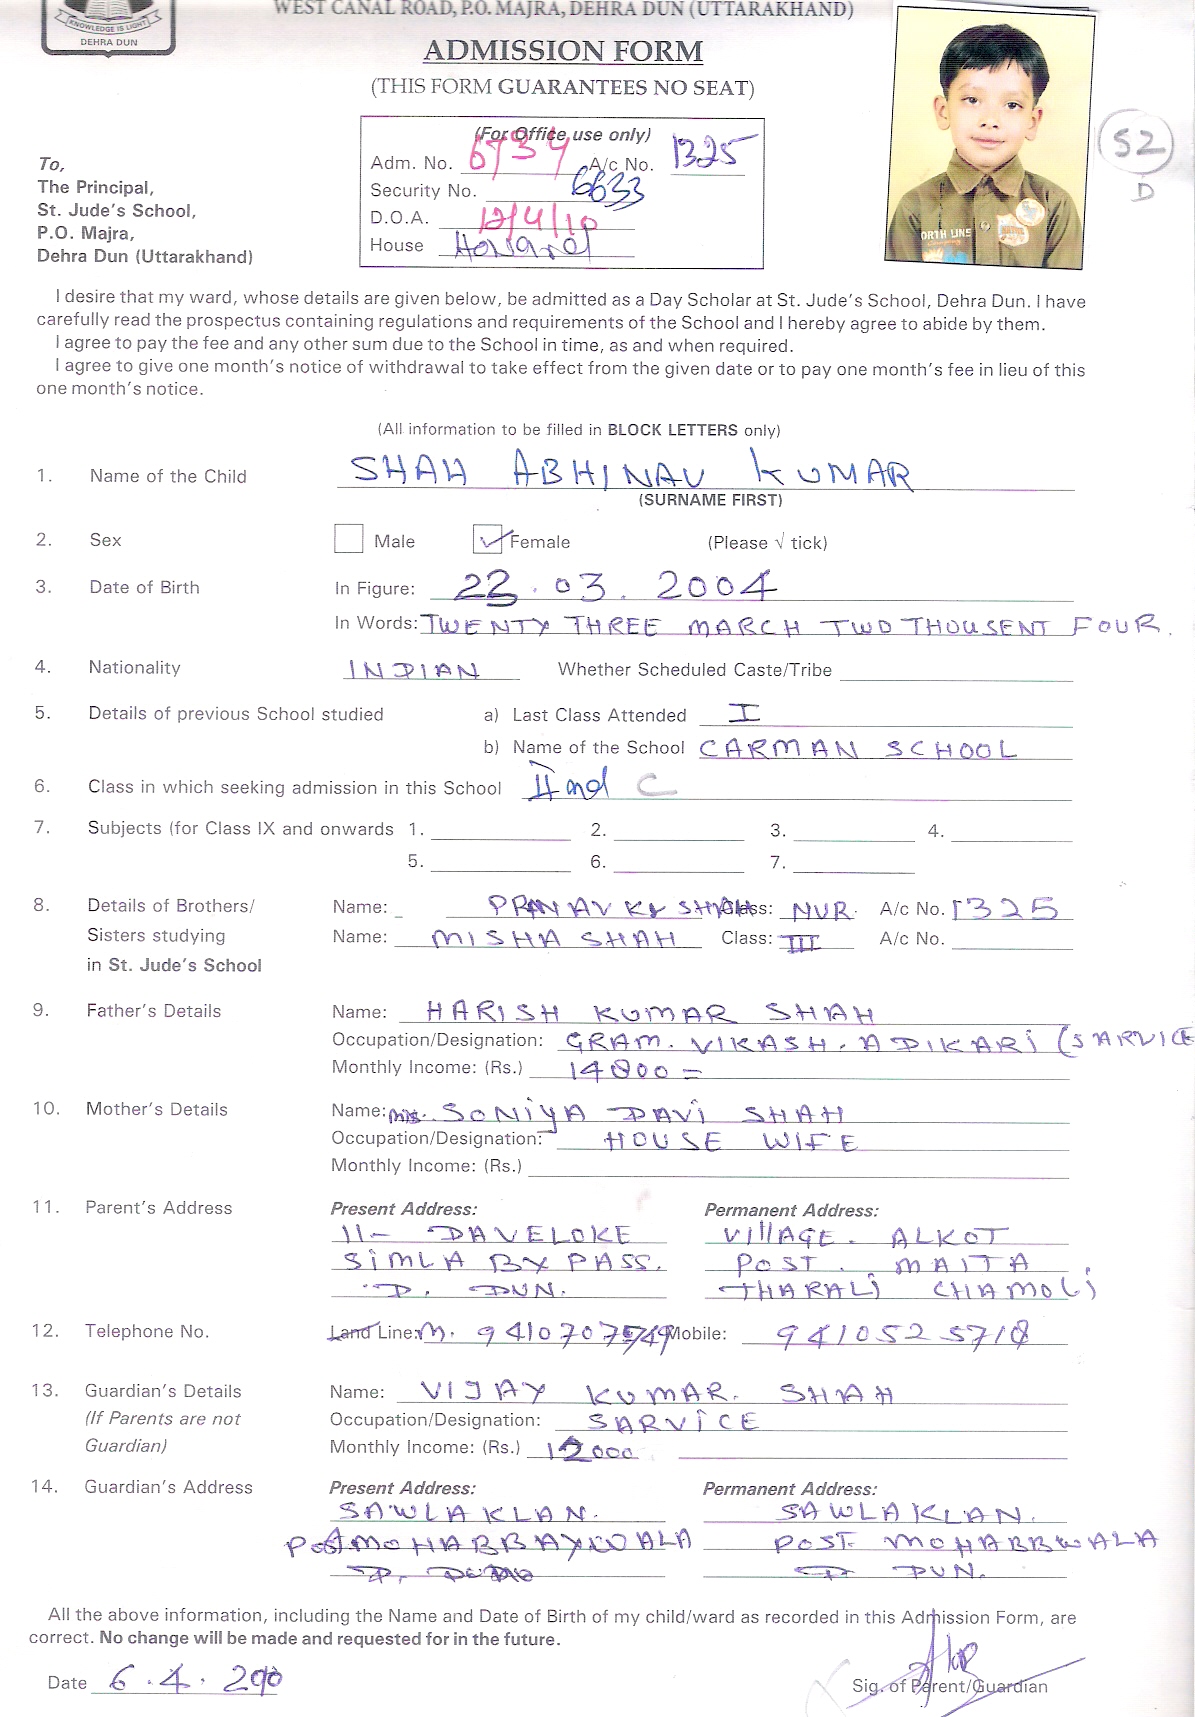 KNOWLEDGE IS LIGHT
DEHRA DUN
WEST CANAL ROAD, P.O. MAJRA, DEHRA DUN (UTTARAKHAND)
ADMISSION FORM
(THIS FORM GUARANTEES NO SEAT)
(For Office use only)
Adm. No. 6734 A/c No. 1325
Security No. 6633
D.O.A. 12/4/10
House
52
D
To,
The Principal,
St. Jude's School,
P.O. Majra,
Dehra Dun (Uttarakhand)
I desire that my ward, whose details are given below, be admitted as a Day Scholar at St. Jude's School, Dehra Dun. I have
carefully read the prospectus containing regulations and requirements of the School and I hereby agree to abide by them.
I agree to pay the fee and any other sum due to the School in time, as and when required.
I agree to give one month's notice of withdrawal to take effect from the given date or to pay one month's fee in lieu of this
one month's notice.
(All information to be filled in BLOCK LETTERS only)
1. Name of the Child SHAH ABHINAV KUMAR
(SURNAME FIRST)
2. Sex Male Female (Please √ tick)
3. Date of Birth In Figure: 23.03.2004
In Words: TWENTY THREE MARCH TWO THOUSENT FOUR.
4. Nationality INDIAN Whether Scheduled Caste/Tribe
5. Details of previous School studied a) Last Class Attended I
b) Name of the School CARMAN SCHOOL
6. Class in which seeking admission in this School IInd C
7. Subjects (for Class IX and onwards 1. 2. 3. 4.
5. 6. 7.
8. Details of Brothers/ Name: PRANAV KR SHAH Class: NUR. A/c No. 1325
Sisters studying Name: MISHA SHAH Class: III A/c No.
in St. Jude's School
9. Father's Details Name: HARISH KUMAR SHAH
Occupation/Designation: GRAM. VIKASH. ADIKARI (SARVICE
Monthly Income: (Rs.) 14000 =
10. Mother's Details Name: SONIYA DAVI SHAH
Occupation/Designation: HOUSE WIFE
Monthly Income: (Rs.)
11. Parent's Address Present Address: Permanent Address:
11- DAVELOKE VillAGE. ALKOT
SIMLA BY PASS. POST. MAITA,
D. DUN. THARALI CHAMOLI
12. Telephone No. Land Line: M. Mobile: 9410525718
13. Guardian's Details Name: VIJAY KUMAR. SHAH
(If Parents are not Occupation/Designation: SARVICE
Guardian) Monthly Income: (Rs.) 12000
14. Guardian's Address Present Address: Permanent Address:
SAWLAKLAN. SAWLAKLAN.
POST. MOHABBWALA
D. D DUN.
All the above information, including the Name and Date of Birth of my child/ward as recorded in this Admission Form, are
correct. No change will be made and requested for in the future.
Date 6.4. Sig. of Parent/Guardian